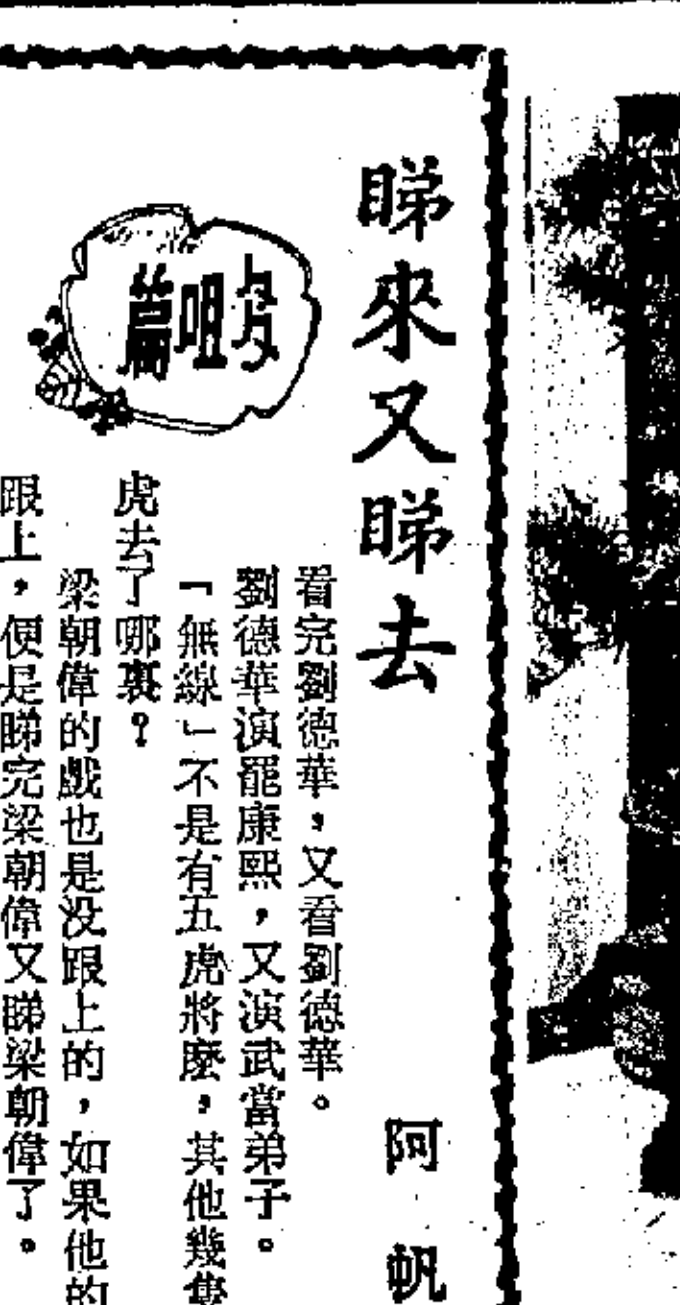 睇來又睇去
阿帆
咀篇
看完劉德華,又看劉德華。
劉德華演罷康熙,又演武當弟子。
「無線」不是有五虎將麼,其他幾隻
虎去了哪裏?
梁朝偉的戲也是没跟上的,如果他的
跟上,便是睇完梁朝偉又睇梁朝偉了。